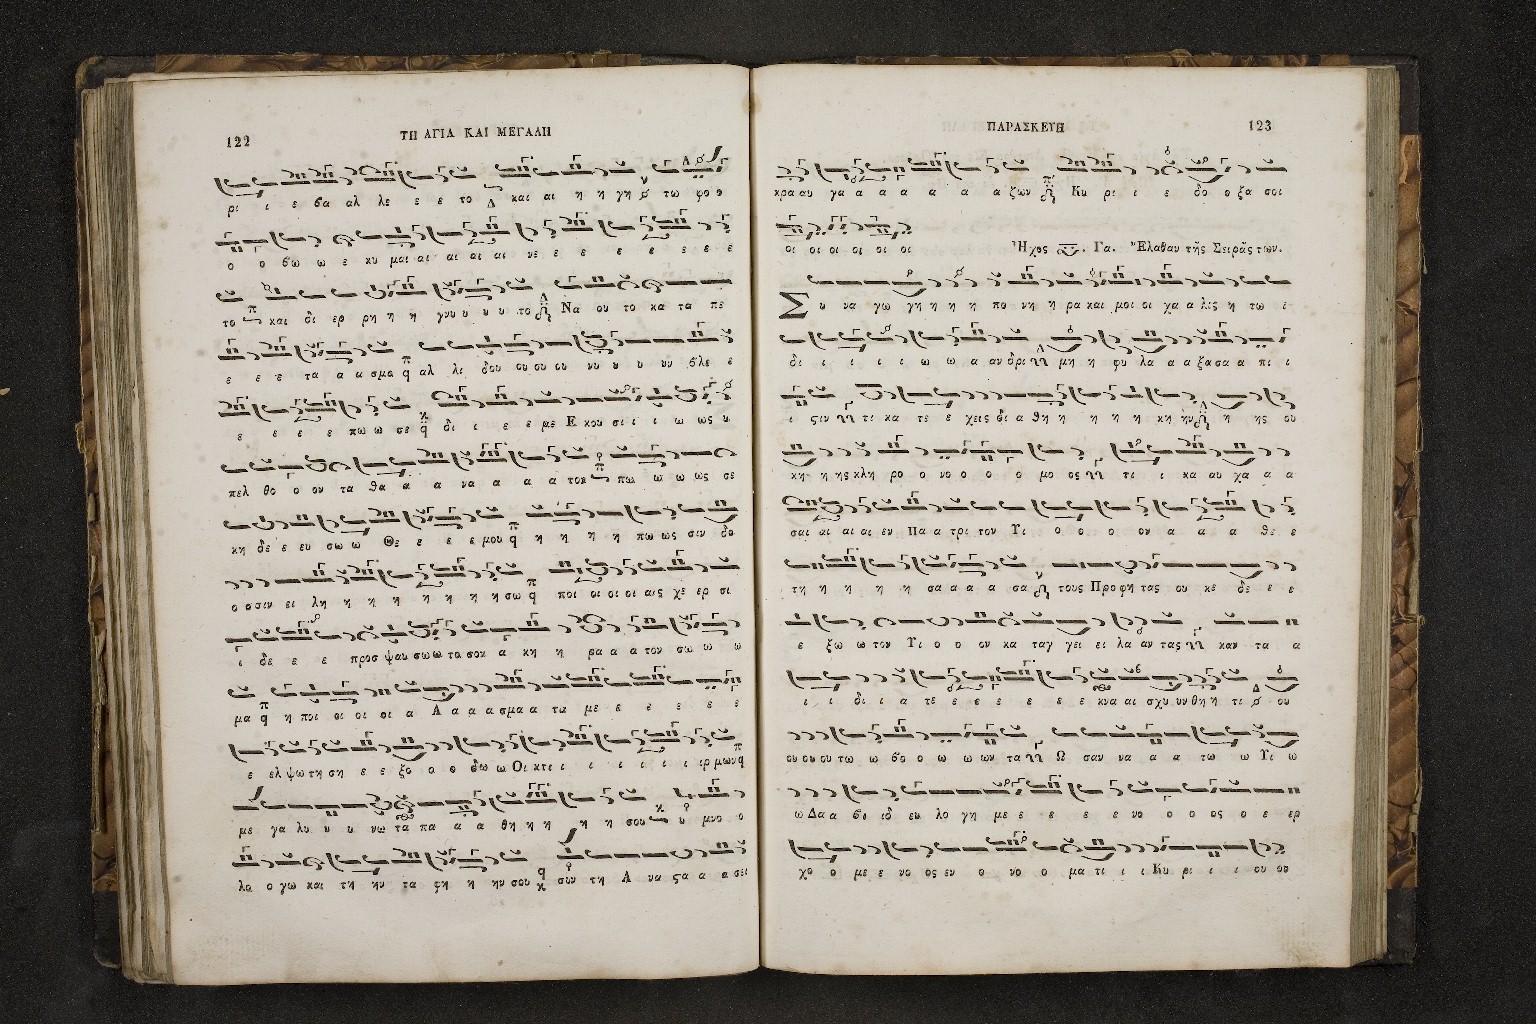 122
ΤΗ ΑΓΙΑ ΚΑΙ ΜΕΓΑΛΗ
ρι ι ε βα αλ λε ε ε το και αι η η γη τω φο ο
ο ο βω ω ε κυ μαι αι αι αι αι νε ε ε ε ε ε ε
το και δι ερ ρη η η γνυ υ υ υ το Να ου το κα τα πε
ε ε ε τα α α σμα αλ λι δου ου ου ου νυ υ υ υν βλε ε
ε ε ε ε πω ω σε δι ι ε ε με Ε κου σι ι ι ω ως υ
πελ θο ο ον τα θα α α να α α α τον πω ω ω ως σε
κη δε ε ευ σω ω Θε ε ε ε μου η η η η πω ως σιν δο
ο ο σιν ει λη η η η η η η η σω ποι οι οι οι αις χε ερ σι
ι δε ε ε προσ ψαυ σω ω το σον α κη η ρα α α τον σω ω ω
μα η ποι οι οι οι α Α α α α σμα α τα με ε ε ε ε ε
ε ελ ψω τη ση ε ε ξο ο ο δω ω Οι κτι ι ι ι ι ι ι ιρ μων
με γα λυ υ υ νω τα πα α α θη η η η η σου υ μνο ο
λο ο γω και τη ην τα φη η ην σου συν τη Α να ςα α α σει
ΠΑΡΑΣΚΕΥΗ
123
κρα αυ γα α α α α α α ζων Κυ ρι ι ε δο ο ξα σοι
οι οι οι οι οι οι
Ἦχος Γα. Ἔλαθαν τῆς Σειρᾶς των.
Συ να γω γη η η η πο νη η ρα και μοι οι χα α λις η τω ε
δι ι ι ι ι ω ω α αν δρι μη η φυ λα α α ξα σα α πι ι
ι ςιν τι κα τε ε χεις δι α θη η η η η κη ην η ης ου
κη η ης κλη ρο ο νο ο ο ο μο ος τι ι κα αυ χα α α
σαι αι αι αι εν Πα α τρι τον Υι ο ο ο ον α α α θε ε
τη η η η η σα α α α σα τους Προ φη τας ου κε δε ε ε
ε ξω ω τον Υι ο ο ον κα ταγ γει ει λα αν τας καν τα α
ι ι δι ι α τε ε ε ε ε ε ε κυα αι σχυ υν θη η τι ου
ου ου ου τω ω βο ο ω ω ων τα Ω σαν να α α τω ω Υι ω
ω Δα α βι ιδ ευ λο γη με ε ε ε ε νο ο ο ος ο ε ερ
χο ο με ε νο ος εν ο νο ο μα τι ι ι Κυ ρι ι ι ου ου